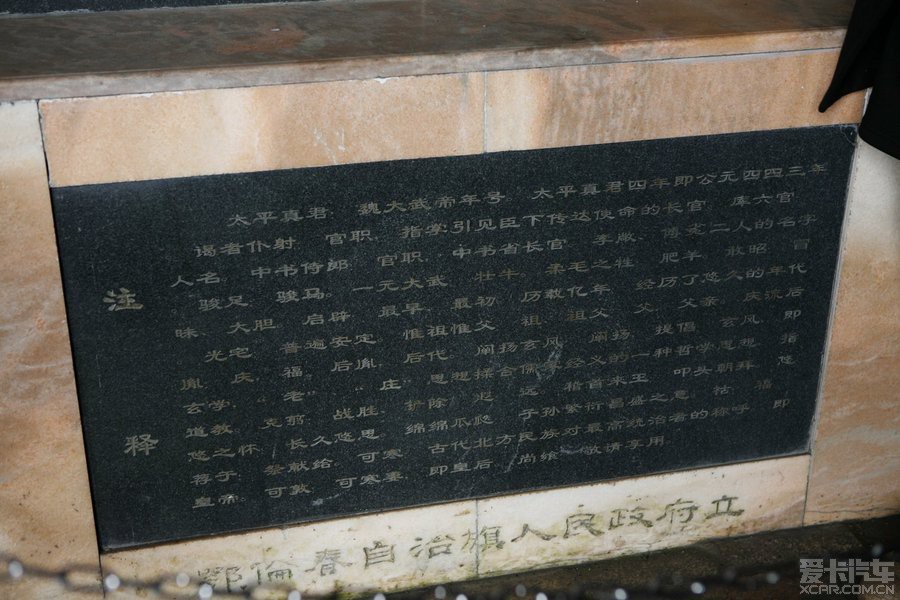 注释
太平真君：魏大武帝年号 太平真君四年即公元四四三年
谒者仆射：官职，指掌引见臣下传达使命的长官 库六官
人名 中书侍郎 官职，中书省长官 李敞、傅 二人的名字
骏足 骏马。一元大武 牡牛，柔毛之牲 肥羊，敢昭 冒
昧，大胆，启辟 最早，最初 历载亿年 经历了悠久的年代
光宅 普遍安定，惟祖惟父 祖父，父亲，庆流后
胤 庆，福。后胤，后代，阐扬玄风，阐扬，提倡 玄风，即
玄学，“老”“庄”思想揉合儒家经义的一种哲学思想 指
道教，克翦 战胜，扩除 远 稽首来王 叩头朝拜
悠之怀 长久悠思 绵绵瓜瓞 子孙繁衍昌盛之意 福
荐于 祭献给 可寒 古代北方民族对最高统治者的称呼 即
皇帝，可敦 可寒妻，即皇后 尚飨 敬请享用
鄂倫春自治旗人民政府立
爱卡汽车
XCAR.COM.CN